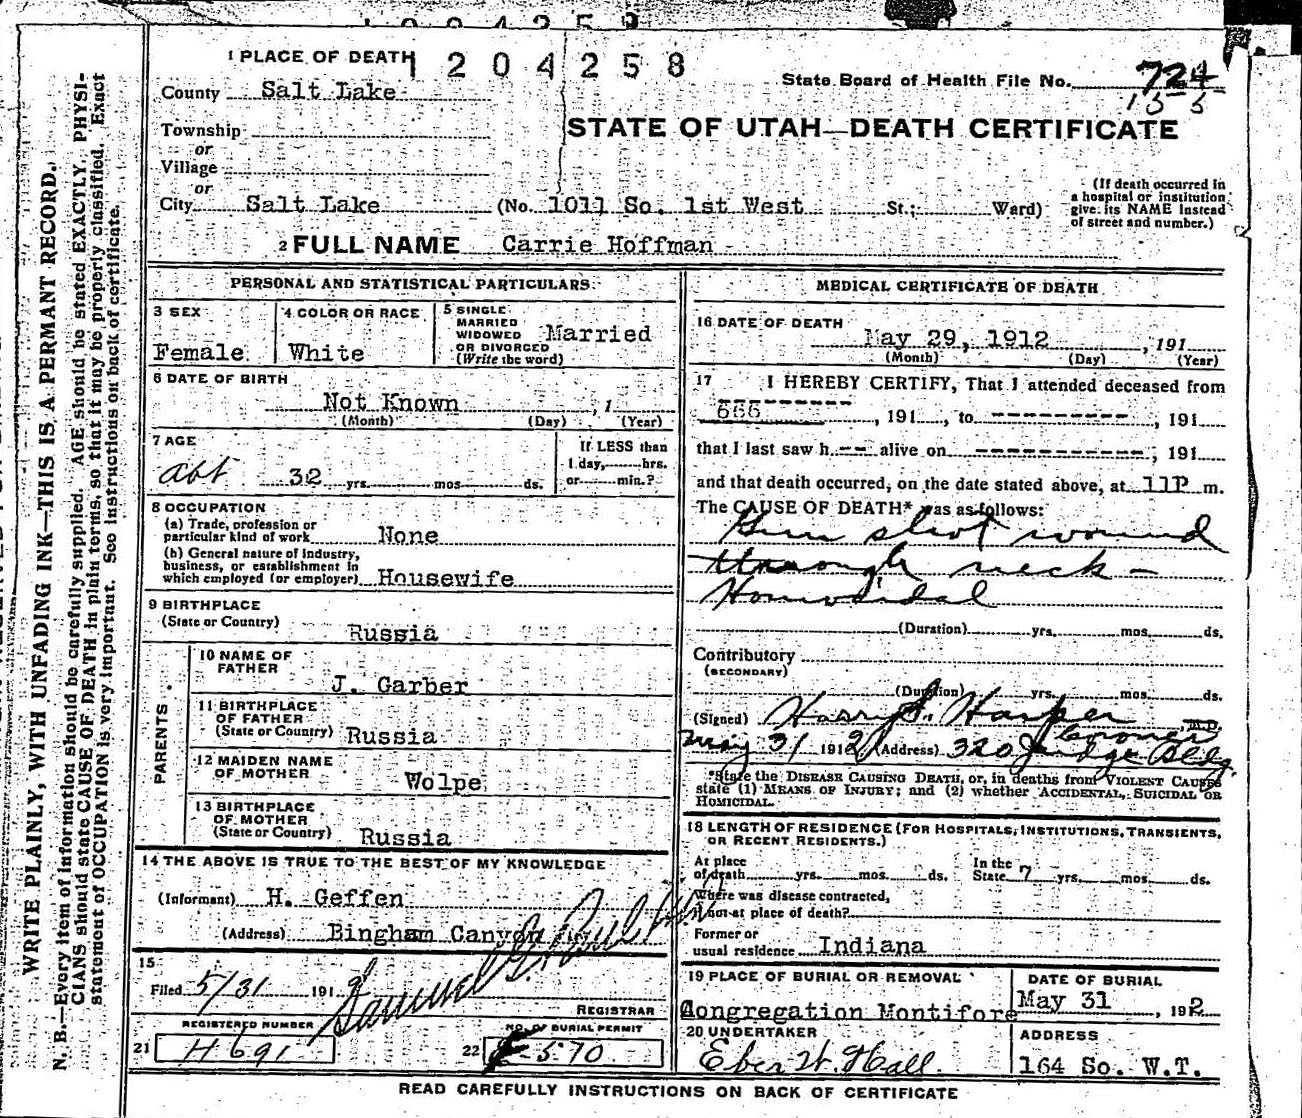 1 PLACE OF DEATH
1204258
State Board of Health File No. 724
155
County Salt Lake
Township
or
Village
or
City Salt Lake (No. 1011 So. 1st West St.; Ward)
STATE OF UTAH—DEATH CERTIFICATE
(If death occurred in
a hospital or institution
give its NAME instead
of street and number.)
2 FULL NAME Carrie Hoffman
PERSONAL AND STATISTICAL PARTICULARS
3 SEX
Female
4 COLOR OR RACE
White
5 SINGLE
MARRIED
WIDOWED
OR DIVORCED
(Write the word)
Married
6 DATE OF BIRTH
Not Known , 1
(Month) (Day) (Year)
7 AGE
abt 32 yrs. mos. ds.
If LESS than
1 day, hrs.
or min.?
8 OCCUPATION
(a) Trade, profession or
particular kind of work None
(b) General nature of industry,
business, or establishment in
which employed (or employer) Housewife
9 BIRTHPLACE
(State or Country)
Russia
PARENTS
10 NAME OF
FATHER
J. Garber
11 BIRTHPLACE
OF FATHER
(State or Country) Russia
12 MAIDEN NAME
OF MOTHER
Wolpe
13 BIRTHPLACE
OF MOTHER
(State or Country) Russia
14 THE ABOVE IS TRUE TO THE BEST OF MY KNOWLEDGE
(Informant) H. Geffen
(Address) Bingham Canyon
15
Filed 5/31 191 2
Samuel G. Paul
REGISTRAR
REGISTERED NUMBER
21 H 691
NO. OF BURIAL PERMIT
22 570
MEDICAL CERTIFICATE OF DEATH
16 DATE OF DEATH
May 29, 1912 , 191
(Month) (Day) (Year)
17 I HEREBY CERTIFY, That I attended deceased from
666 , 191 , to ---------- , 191
that I last saw h -- alive on ------------ , 191
and that death occurred, on the date stated above, at 11P m.
The CAUSE OF DEATH* was as follows:
Gun shot wound
through neck -
Homocidal
(Duration) yrs. mos. ds.
Contributory
(SECONDARY)
(Duration) yrs. mos. ds.
(Signed) Harry S. Harper M.D.
Coroner
May 31 1912 (Address) 320 Judge Bldg.
*State the DISEASE CAUSING DEATH, or, in deaths from VIOLENT CAUSES
state (1) MEANS OF INJURY; and (2) whether ACCIDENTAL, SUICIDAL OR
HOMICIDAL.
18 LENGTH OF RESIDENCE (FOR HOSPITALS, INSTITUTIONS, TRANSIENTS,
OR RECENT RESIDENTS.)
At place
of death yrs. mos. ds.
In the
State 7 yrs. mos. ds.
Where was disease contracted,
if not at place of death?
Former or
usual residence Indiana
19 PLACE OF BURIAL OR REMOVAL
Congregation Montifore
DATE OF BURIAL
May 31 , 1912
20 UNDERTAKER
Eber W. Hall
ADDRESS
164 So. W.T.
READ CAREFULLY INSTRUCTIONS ON BACK OF CERTIFICATE
WRITE PLAINLY, WITH UNFADING INK—THIS IS A PERMANT RECORD.
N. B.—Every item of information should be carefully supplied. AGE should be stated EXACTLY. PHYSI-
CIANS should state CAUSE OF DEATH in plain terms, so that it may be properly classified. Exact
statement of OCCUPATION is very important. See instructions on back of certificate.